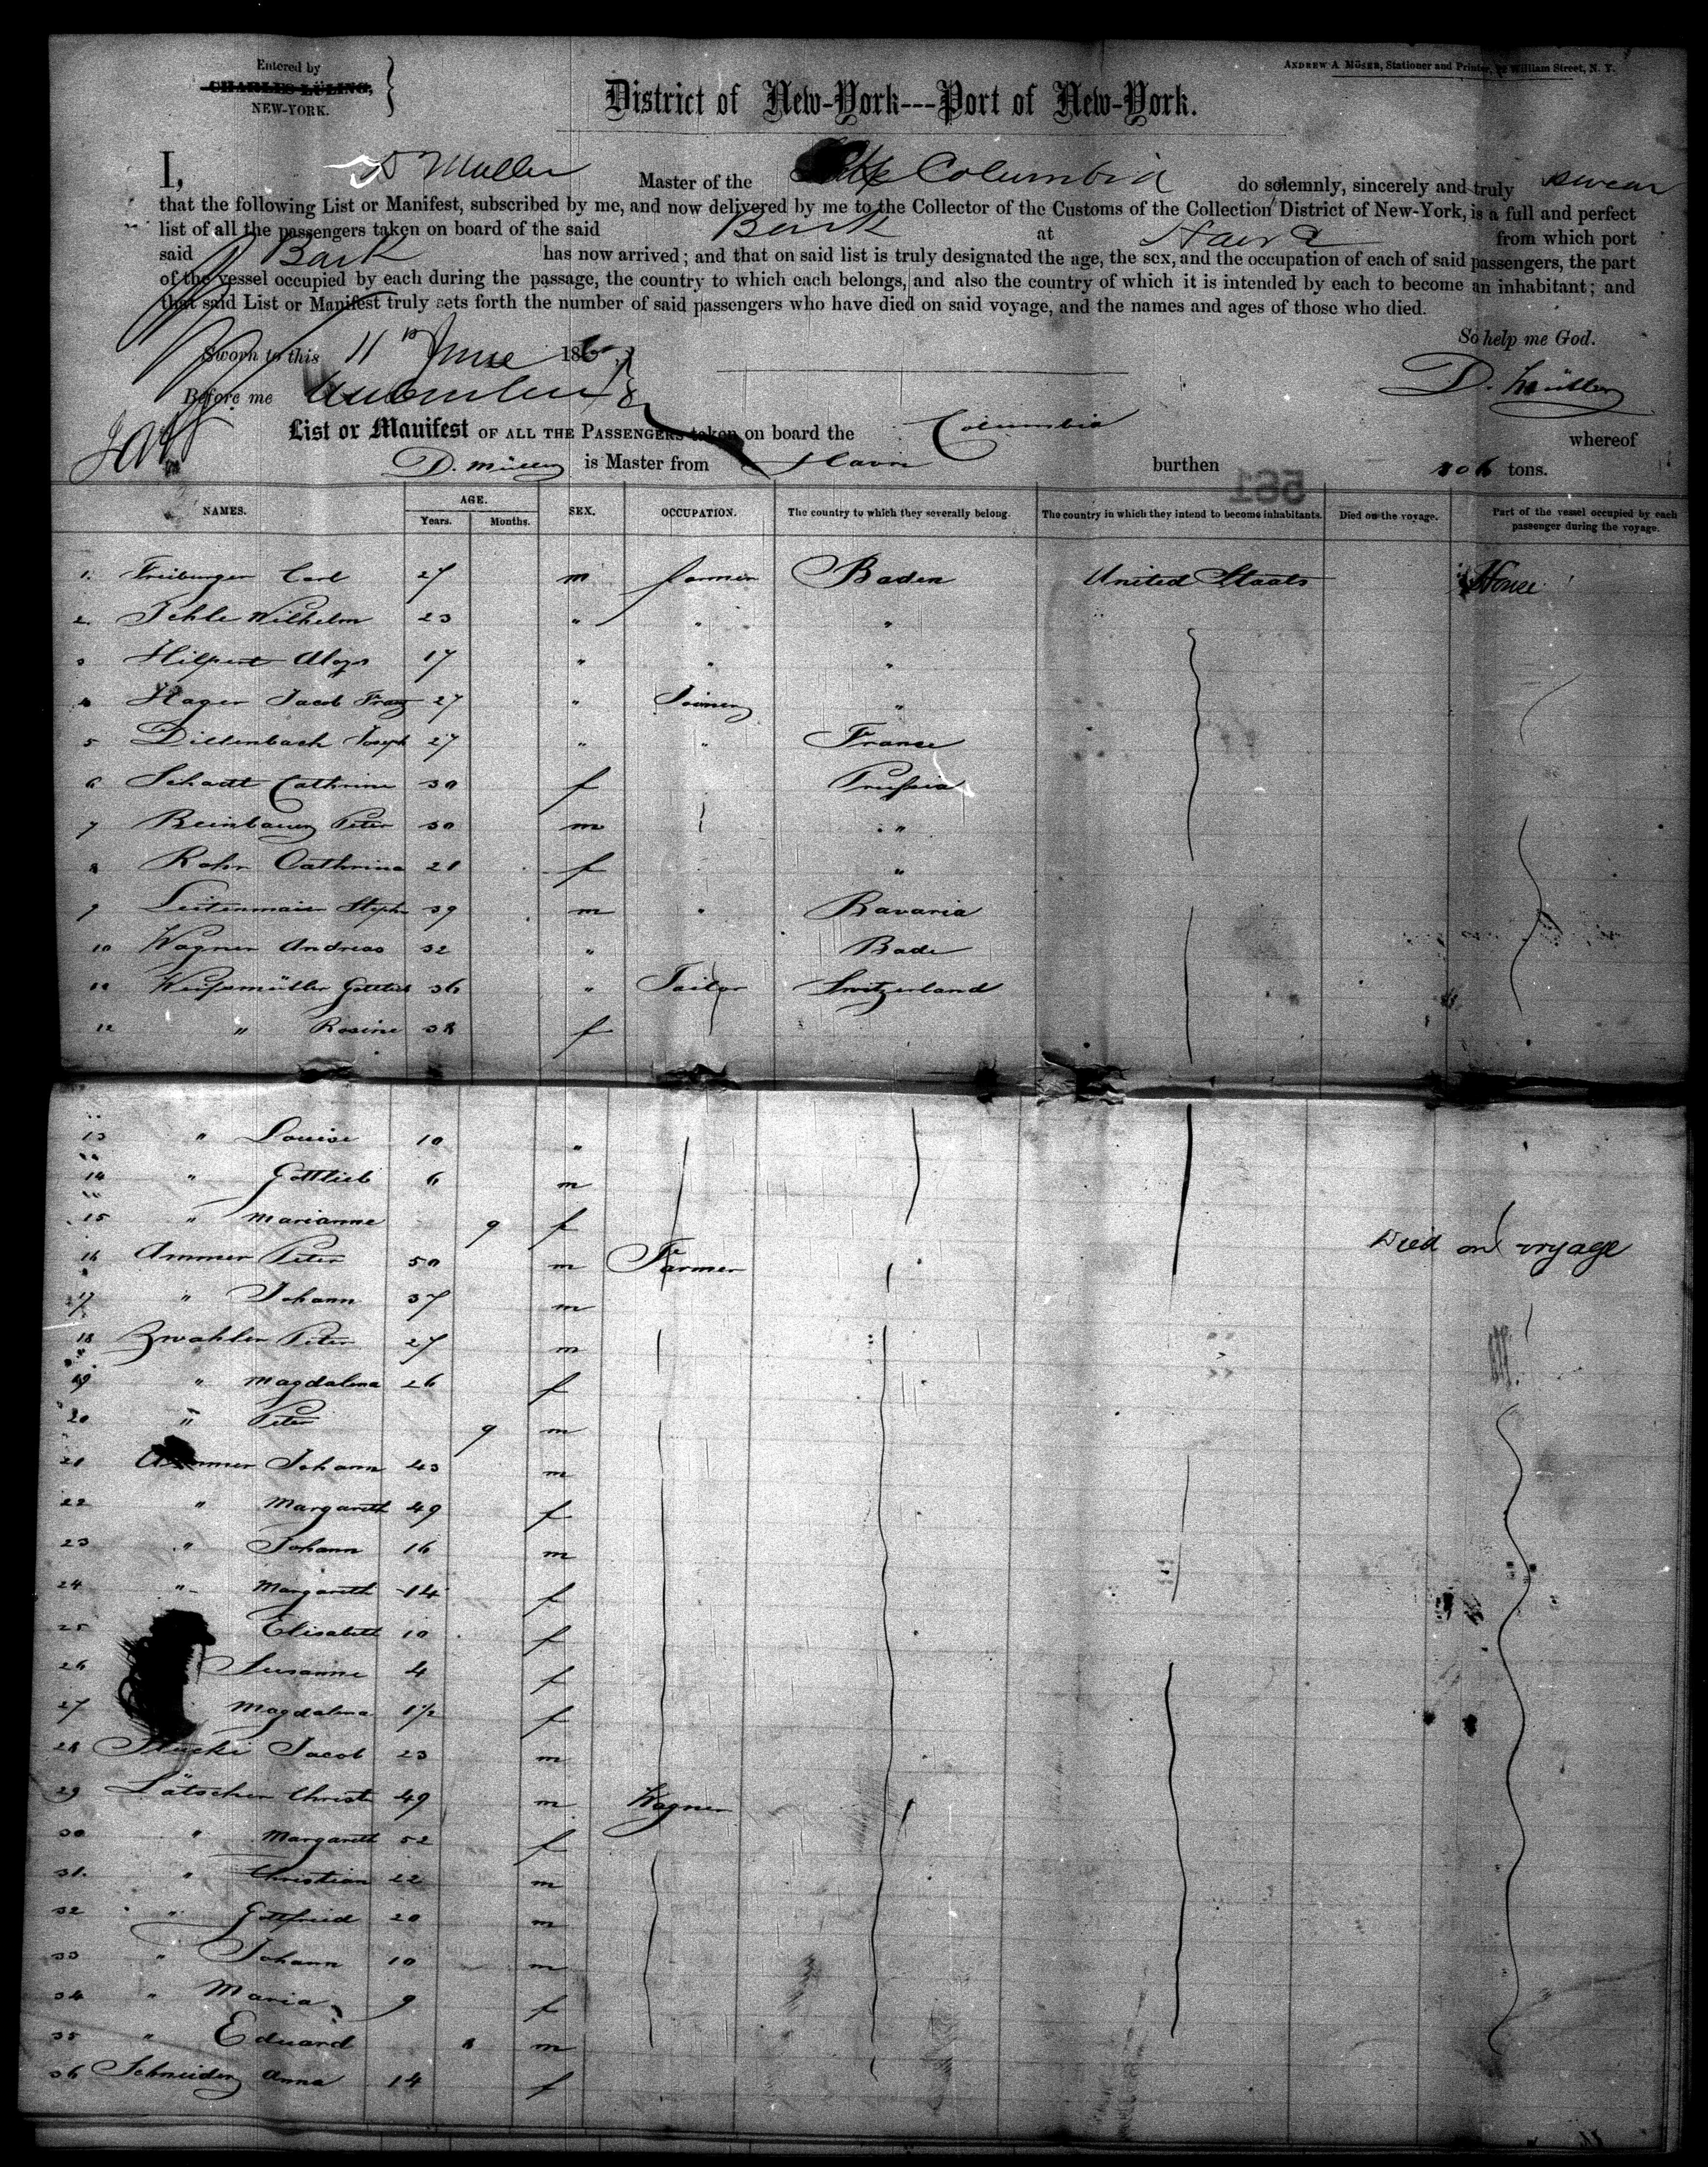 Entered by
CHARLES LÜLING,
NEW-YORK.
ANDREW A MÖSER, Stationer and Printer, William Street, N. Y.
District of New-York---Port of New-York.
I, D Muller Master of the Columbia do solemnly, sincerely and truly swear
that the following List or Manifest, subscribed by me, and now delivered by me to the Collector of the Customs of the Collection District of New-York, is a full and perfect
list of all the passengers taken on board of the said Bark at Havre from which port
said Bark has now arrived; and that on said list is truly designated the age, the sex, and the occupation of each of said passengers, the part
of the vessel occupied by each during the passage, the country to which each belongs, and also the country of which it is intended by each to become an inhabitant; and
that said List or Manifest truly sets forth the number of said passengers who have died on said voyage, and the names and ages of those who died.
So help me God.
Sworn to this 11th June 186
D. Müller
Before me
List or Manifest OF ALL THE PASSENGERS taken on board the Columbia whereof
D. Müller is Master from Havre burthen tons.
561
NAMES. AGE. Years. Months. SEX. OCCUPATION. The country to which they severally belong. The country in which they intend to become inhabitants. Died on the voyage. Part of the vessel occupied by each passenger during the voyage.
1. Freiburger Carl 27 m farmer Baden United Staats House
2. Jehle Wilhelm 23 " " "
3 Hilpert Aloys 17 " " "
4 Hager Jacob Franz 27 " Joiner "
5 Diltenbach Joseph 27 " " France
6 Schaett Cathrine 30 f Prussia
7 Beinbauer Peter 30 m "
8 Rohr Cathrina 21 f "
9 Leitenmaier Steph 39 m " Bavaria
10 Wagner Andreas 32 " Bade
11 Weissmüller Gottlieb 36 " Tailor Switzerland
12 " Rosine 38 f
13 " Louise 10 "
14 " Gottlieb 6 m
15 " Marianne 9 f Died on voyage
16 Ammer Peter 50 m Farmer
17 " Johann 37 m
18 Zwahlen Peter 27 m
19 " Magdalena 26 f
20 " Peter 9 m
21 Ammer Johann 43 m
22 " Margareth 49 f
23 " Johann 16 m
24 " Margareth 14 f
25 Elisabeth 10 f
26 Susanne 4 f
27 Magdalena 1½ f
28 Stucki Jacob 23 m
29 Lätscher Christ 49 m Wagner
30 " Margareth 52 f
31. " Christian 22 m
32 " Gottfried 20 m
33 " Johann 10 m
34 " Maria 9 f
35 " Eduard 8 m
36 Schneider Anna 14 f